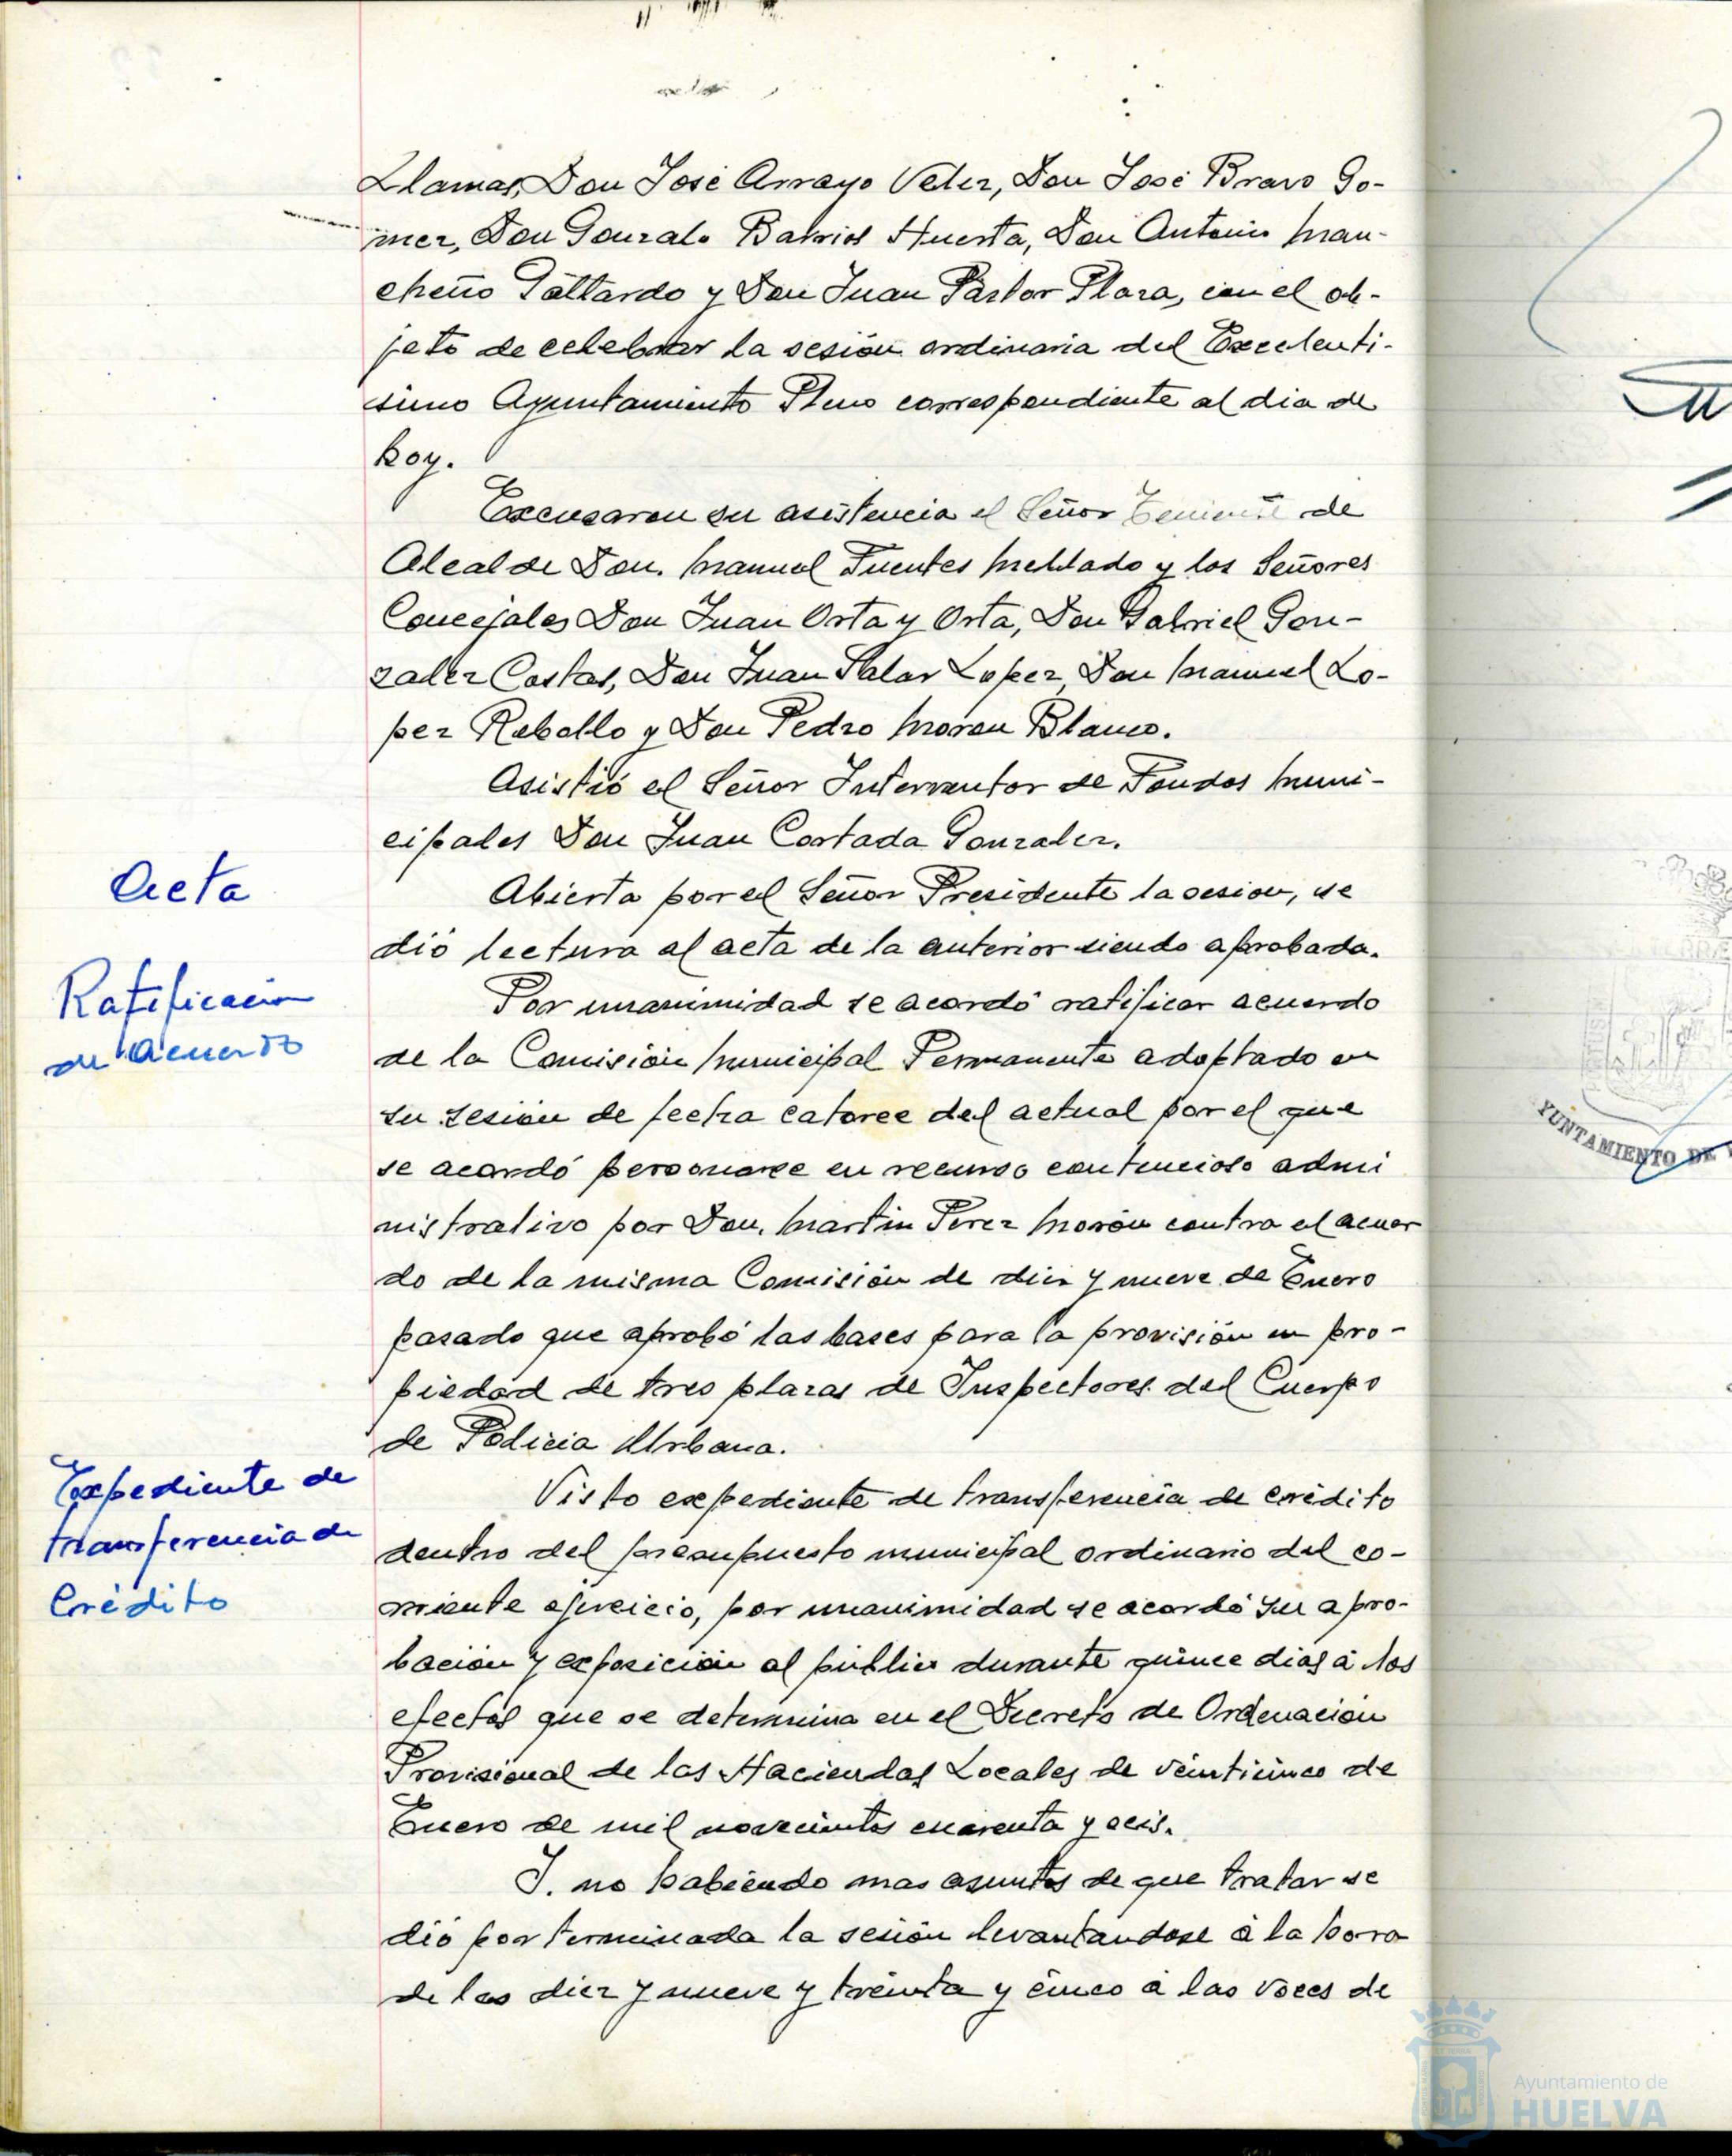 Llamas, Don José Arroyo Velez, Don José Bravo Go-
mez, Don Gonzalo Barrios Huerta, Don Antonio Man-
cheño Gallardo y Don Juan Pastor Plaza, con el ob-
jeto de celebrar la sesión ordinaria del Excelenti-
simo Ayuntamiento Pleno correspondiente al dia de
hoy.
Excusaron su asistencia el Señor Teniente de
Alcalde Don. Manuel Fuentes Mellado y los Señores
Concejales Don Juan Orta y Orta, Don Gabriel Gon-
zalez Costas, Don Juan Salas Lopez, Don Manuel Lo-
pez Rebollo y Don Pedro Moron Blanco.
Asistió el Señor Interventor de Fondos Muni-
cipales Don Juan Cortada Gonzalez.
Acta
Abierta por el Señor Presidente la sesion, se
dió lectura al acta de la anterior siendo aprobada.
Ratificacion
de acuerdo
Por unanimidad se acordó ratificar acuerdo
de la Comisión Municipal Permanente adoptado en
su sesion de fecha catorce del actual por el que
se acordó personarse en recurso contencioso admi
nistrativo por Don. Martin Perez Morón contra el acuer
do de la misma Comisión de diez y nueve de Enero
pasado que aprobó las bases para la provisión en pro-
piedad de tres plazas de Inspectores del Cuerpo
de Policia Urbana.
Expediente de
transferencia de
Crédito
Visto expediente de transferencia de crédito
dentro del presupuesto municipal ordinario del co-
rriente ejercicio, por unanimidad se acordó su apro-
bación y exposición al publico durante quince dias á los
efectos que se determina en el Decreto de Ordenación
Provisional de las Haciendas Locales de veinticinco de
Enero de mil novecientos cuarenta y seis.
Y. no habiendo mas asuntos de que tratar se
dió por terminada la sesión levantandose á la hora
de las diez y nueve y treinta y cinco á las voces de
YUNTAMIENTO DE
Ayuntamiento de
HUELVA